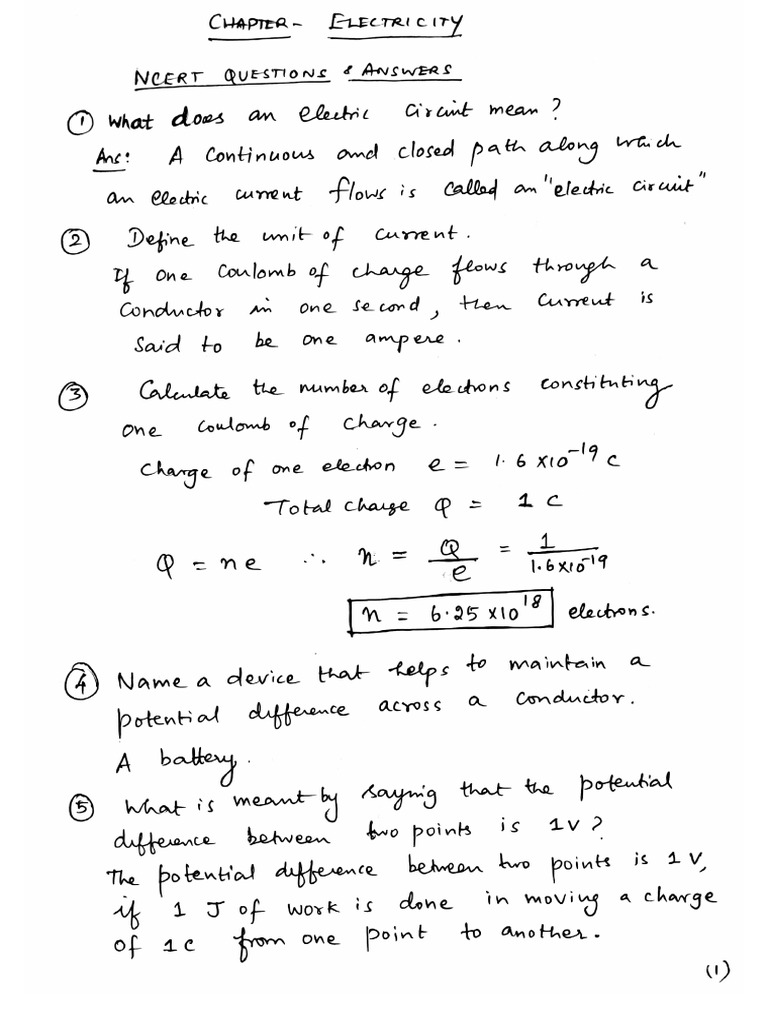 CHAPTER - ELECTRICITY
NCERT QUESTIONS & ANSWERS
① What does an electric circuit mean?
Ans: A continuous and closed path along which
an electric current flows is called an "electric circuit"
② Define the unit of current.
If one coulomb of charge flows through a
conductor in one second, then current is
said to be one ampere.
③ Calculate the number of electrons constituting
one coulomb of charge.
Charge of one electron e = 1.6 x10⁻¹⁹ C
Total charge Q = 1 C
Q = ne ∴ n = Q/e = 1/1.6x10⁻¹⁹
n = 6.25 x10¹⁸ electrons.
④ Name a device that helps to maintain a
potential difference across a conductor.
A battery.
⑤ What is meant by saying that the potential
difference between two points is 1V?
The potential difference between two points is 1V,
if 1 J of work is done in moving a charge
of 1C from one point to another.
(1)